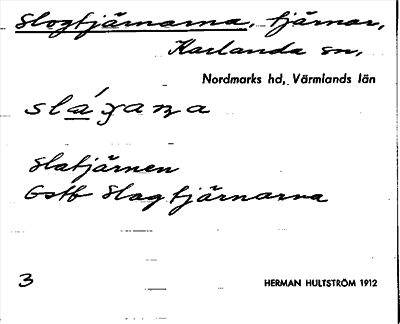 Slogtjärnarna, tjärnar,
Karlanda sn,
Nordmarks hd, Värmlands län
slágana
Slatjärnen
Gstb Slagtjärnarna
3 HERMAN HULTSTRÖM 1912